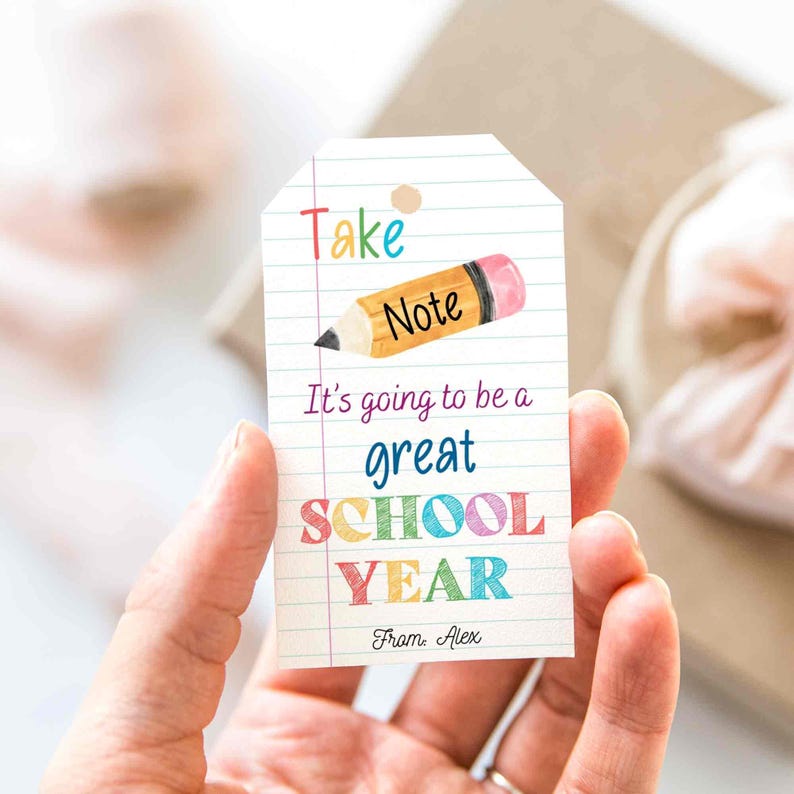 Take
Note
It's going to be a
great
SCHOOL
YEAR
From: Alex